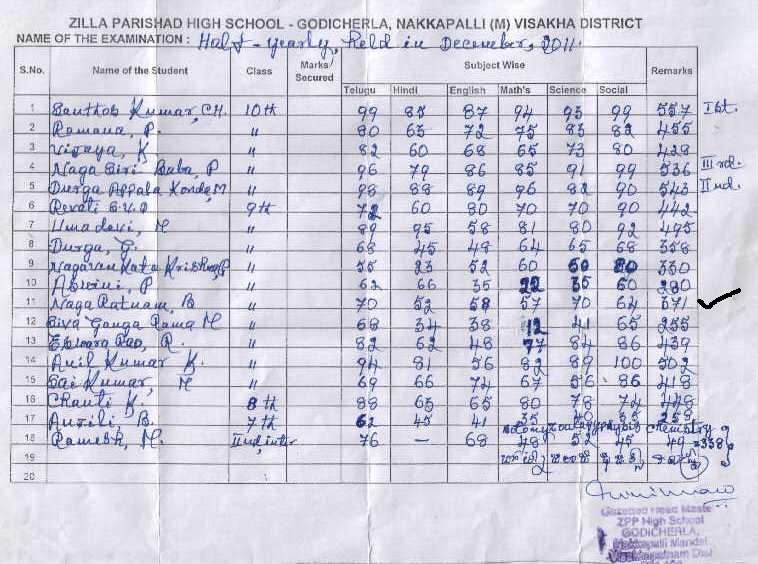 ZILLA PARISHAD HIGH SCHOOL - GODICHERLA, NAKKAPALLI (M) VISAKHA DISTRICT
NAME OF THE EXAMINATION : Half-yearly, Held in December, 2011.
S.No. Name of the Student Class Marks Secured Subject Wise Remarks
Telugu Hindi English Math's Science Social
1 Santhosh Kumar, CH. 10th 99 85 87 94 93 99 557 Ist.
2 Ramana, P. " 80 63 72 75 83 82 455
3 Vijaya, K " 82 60 68 65 73 80 428
4 Naga Siri Baba, P " 96 79 86 85 91 99 536 IIIrd.
5 Durga Appala Konda, M " 98 88 89 96 82 90 543 IInd.
6 Revati 9th 72 60 80 70 70 90 442
7 Uma devi, M " 89 95 58 81 80 92 495
8 Durga, G. " 68 45 48 64 65 68 358
9 Nagavenkata Krishna, P " 55 23 52 60 60 80 330
10 Aswini, P " 62 66 35 22 35 60 280
11 Naga Ratnam, B " 70 52 58 57 70 64 371
12 Siva Ganga Rama M " 68 34 38 12 41 65 255
13 Eswara Rao, R. " 82 62 48 77 84 86 439
14 Anil Kumar K. " 94 81 56 82 89 100 502
15 Sai Kumar, M " 69 66 74 67 56 86 418
16 Chanti K. 8th 88 63 65 80 78 74 448
17 B. 7th 62 45 41 35 40 35 258
Botony Zoology physics chemistry
18 Ramesh, M. IInd, inter 76 - 68 48 52 45 49 =338
19
20
Gazetted Head Maste
ZPP High School
GODICHERLA,
Nakkapalli Mandal
Visakhapatnam Dist